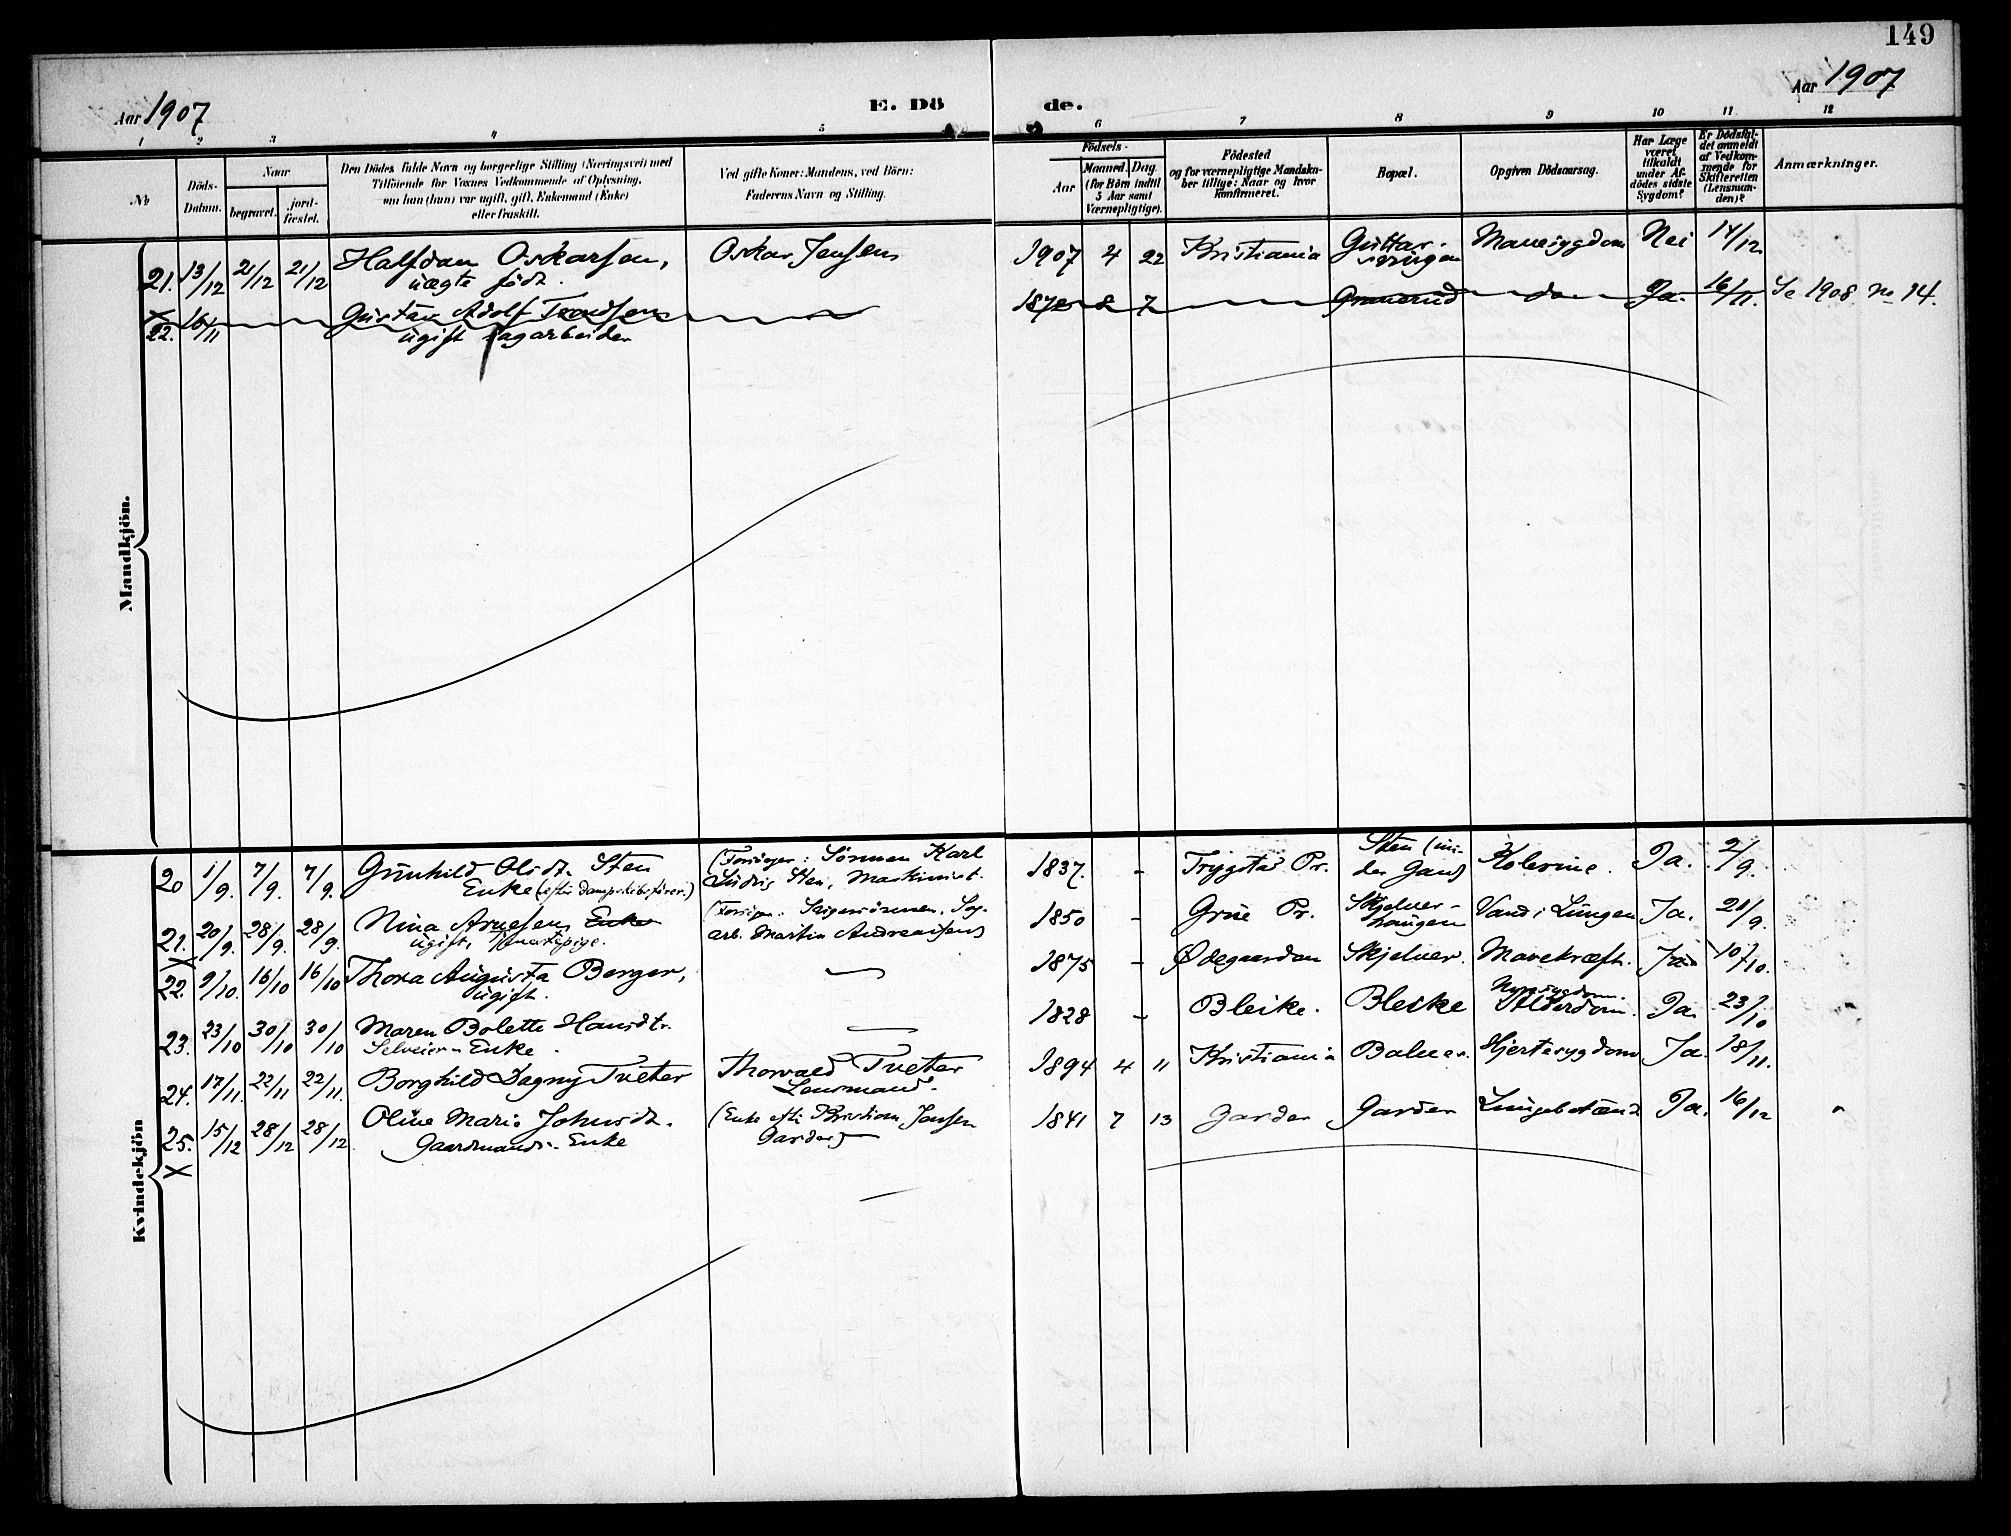 149
Aar 1907
E. Dö de.
Aar 1907
1 2 3 4 5 6 7 8 9 10 11 12
No
Döds-
Datum.
Naar
begravet.
jord-
fæstet.
Den Dödes fulde Navn og borgerlige Stilling (Næringsvei) med
Tilföiende for Voxnes Vedkommende af Oplysning,
om han (hun) var ugift, gift, Enkemand (Enke)
eller fraskilt.
Ved gifte Koner: Mandens, ved Börn:
Faderens Navn og Stilling.
Födsels-
Aar
Maaned. Dag.
(for Börn indtil
5 Aar samt
Værnepligtige).
Födested
og for værnepligtige Mandska-
ber tillige: Naar og hvor
konfirmeret.
Bopæl.
Opgiven Dödsaarsag.
Har Læge
været
tilkaldt
under Af-
dödes sidste
Sygdom?
Er Dödsfal-
det anmeldt
af Vedkom-
mende for
Skifteretten
(Lensman-
den)?
Anmærkninger.
Mandkjön.
21. 13/12 21/12 21/12 Halfdan Oskarsen, Oskar Jensen 1907 4 22 Kristiania Mavesygdom Nei 14/12
uægte födt.
22. 16/11 Gustav Adolf 8 7 Granerud do Ja. 16/11. Se 1908 no 14.
ugift sagarbeider
Kvindekjön
20 1/9. 7/9. 7/9. Gunhild Olsdt. Sten (Forsörger: Sönnen Karl 1837. - Trygstad Pr. Sten (un-
Enke (efter Dampskibsförer.) Ludvig Sten, Maskinist. der Gaus) Kolerine. Ja. 2/9.
21. 20/9. 28/9. 28/9. Nina Arnesen Enke 1850 - Grue Pr. Skjelver-
ugift, arb. Martin Andreassen) haugen Vand i Lungen Ja. 21/9.
22. 9/10. 16/10 16/10 Thora Augusta Berger, 1875 - Ødegaarden Skjelver. Mavekræft. Ja 10/10.
ugift.
23. 23/10 30/10 30/10 Maren Bolette Hansdt. 1828 - Bleike. Bleike Alderdom. Ja. 23/10
Selveier- Enke.
24. 17/11. 22/11 22/11. Borghild Dagny Tveter Thorvald Tveter 1894 4 11 Kristiania Hjertesygdom Ja. 18/11.
Lensmand.
25. 15/12 28/12 28/12. Oline Marie Johnsdt. (Enke efter Kristian Jensen 1841 7 13 Garder Garder Lungebetænd Ja. 16/12
Gaardmands- Enke Garder)